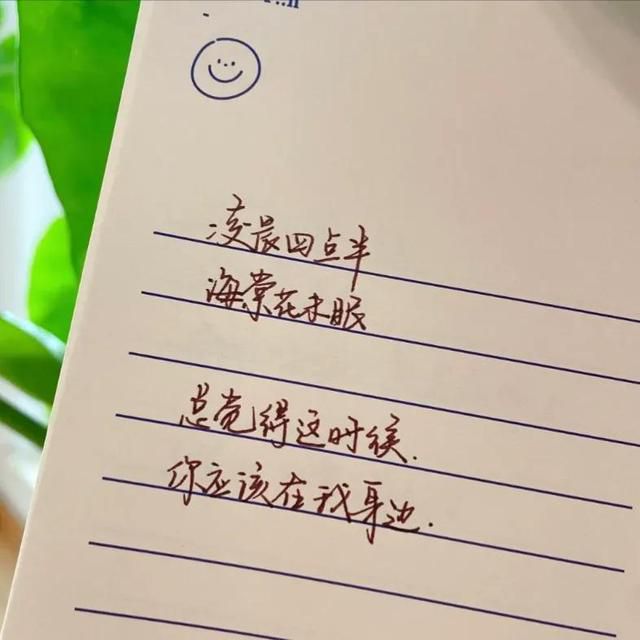 凌晨四点半
海棠花未眠
总觉得这时候.
你应该在我身边.